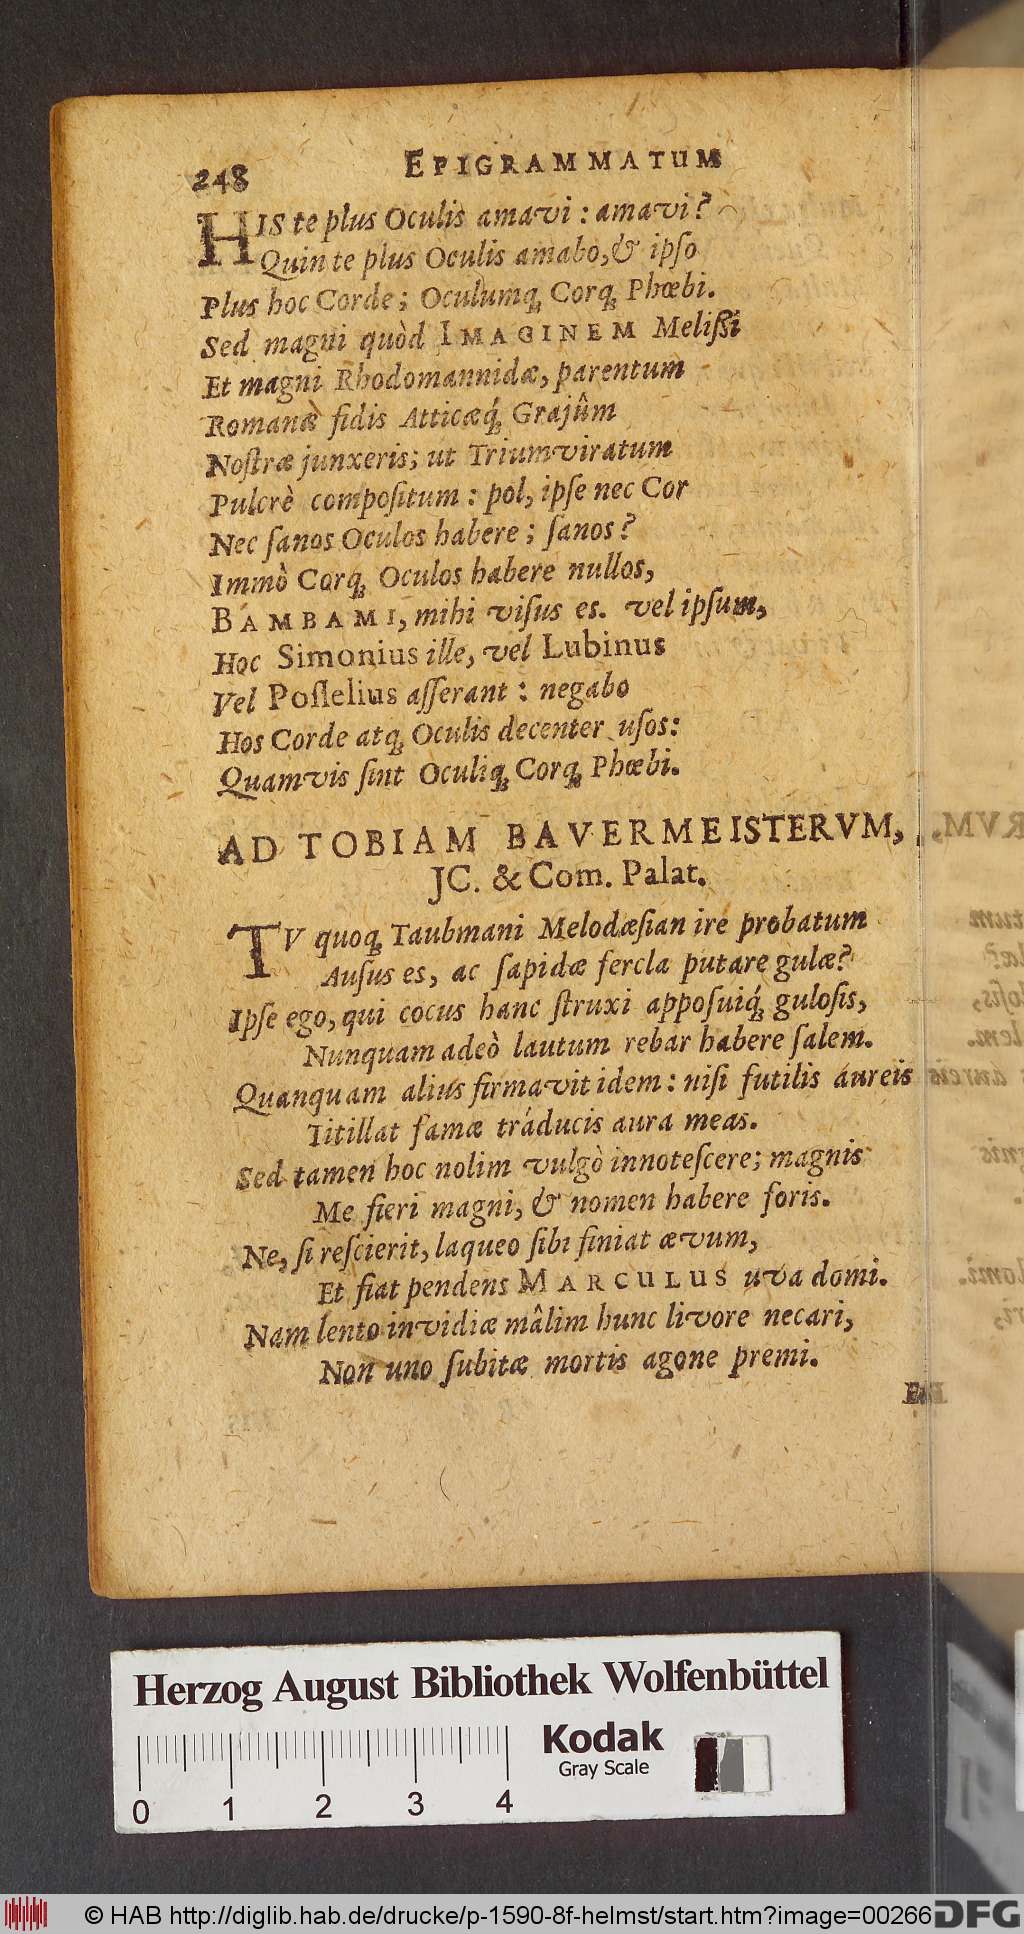 248 EPIGRAMMATUM
HIS te plus Oculis amavi : amavi?
Quin te plus Oculis amabo, & ipso
Plus hoc Corde ; Oculumq́; Corq́; Phœbi.
Sed magni quòd IMAGINEM Melissi
Et magni Rhodomannidæ, parentum
Romanæ fidis Atticæq́; Grajûm
Nostræ junxeris; ut Triumviratum
Pulcrè compositum : pol, ipse nec Cor
Nec sanos Oculos habere ; sanos?
Immò Corq́; Oculos habere nullos,
BAMBAMI, mihi visus es. vel ipsum,
Hoc Simonius ille, vel Lubinus
Vel Posselius asserant : negabo
Hos Corde atq́; Oculis decenter usos:
Quamvis sint Oculiq́; Corq́; Phœbi.
AD TOBIAM BAVERMEISTERVM,
JC. & Com. Palat.
TV quoq́; Taubmani Melodæsian ire probatum
Ausus es, ac sapidæ fercla putare gulæ?
Ipse ego, qui cocus hanc struxi apposuiq́; gulosis,
Nunquam adeò lautum rebar habere salem.
Quanquam alius firmavit idem : nisi futilis aureis
Titillat famæ tráducis aura meas.
Sed tamen hoc nolim vulgò innotescere; magnis
Me fieri magni, & nomen habere foris.
Ne, si rescierit, laqueo sibi finiat ævum,
Et fiat pendens MARCULUS uva domi.
Nam lento invidiæ mâlim hunc livore necari,
Non uno subitæ mortis agone premi.
Herzog August Bibliothek Wolfenbüttel
0 1 2 3 4
Kodak
Gray Scale
© HAB http://diglib.hab.de/drucke/p-1590-8f-helmst/start.htm?image=00266
DFG